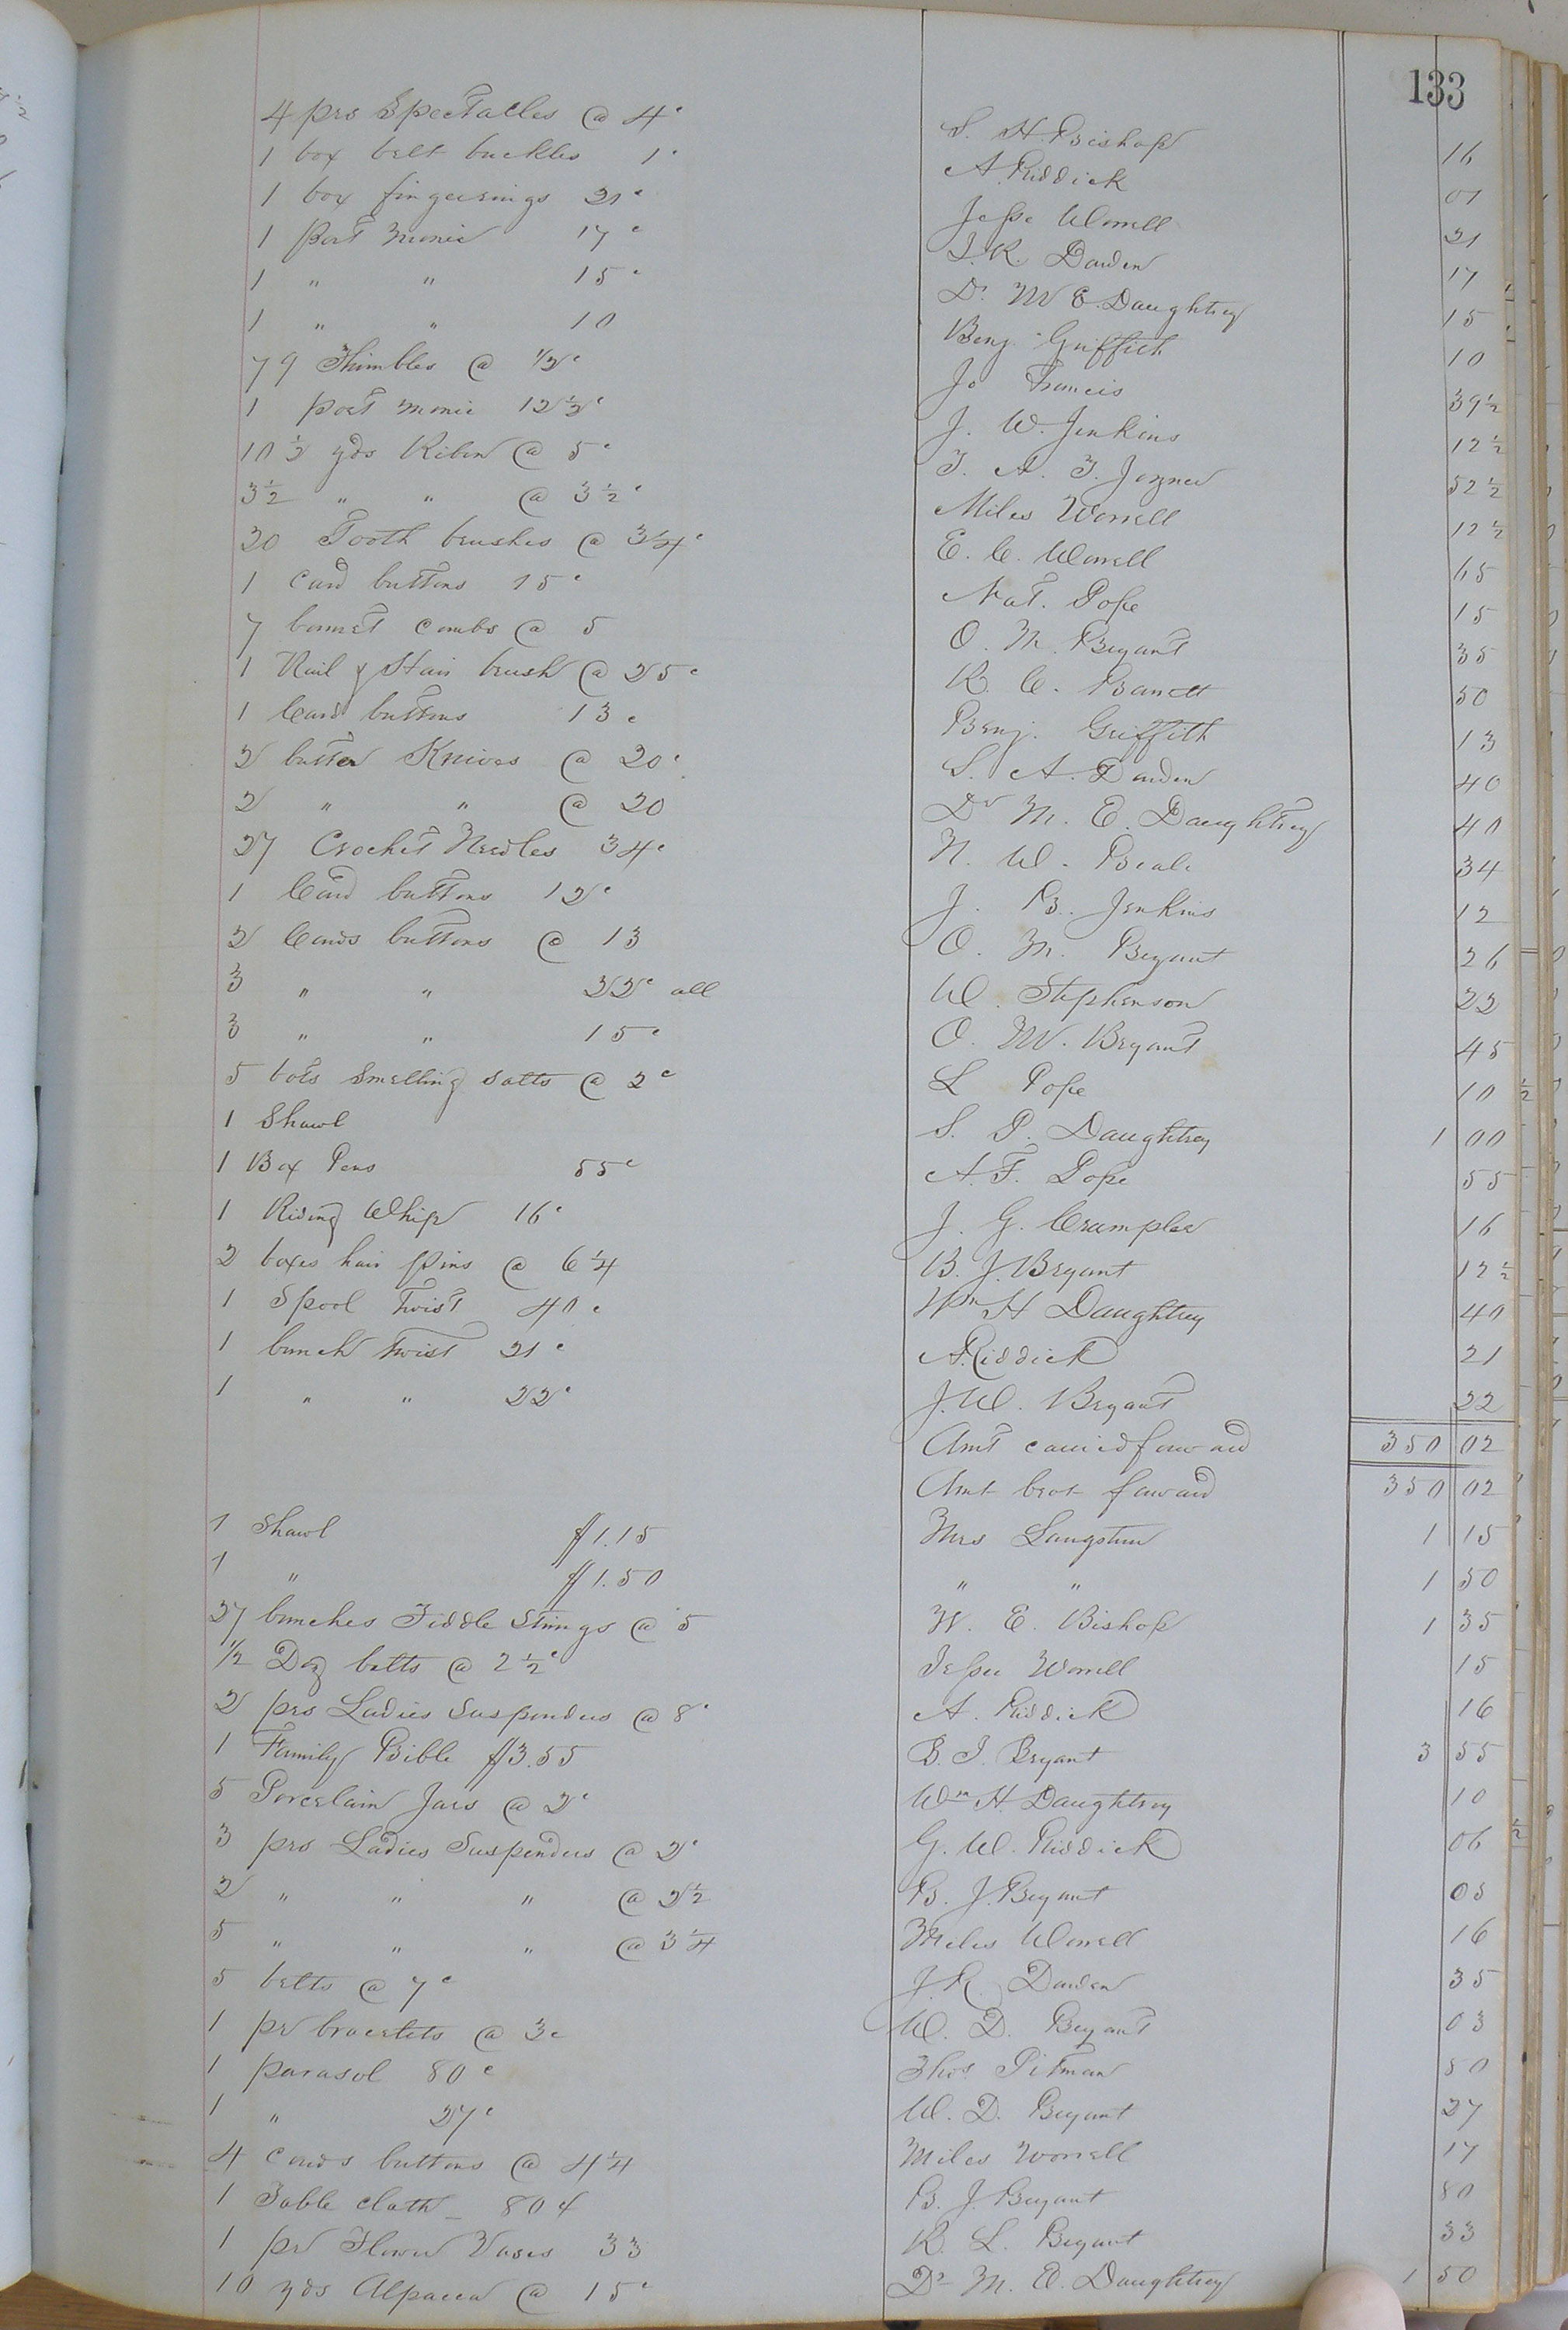 133
4 prs Spectacles @ 4c S. H. Bishop 16
1 box belt buckles 1c A. Riddick 01
1 box fingerrings 21c Jesse Worrell 21
1 Port monie 17c J. R. Darden 17
1 " " 15c Dr M E. Daughtrey 15
1 " " 10 Benj. Griffith 10
79 Thimbles @ 1/2c Jo Francis 39 1/2
1 port monie 12 1/2c J. W. Jenkins 12 1/2
10 1/2 yds Ribin @ 5c T. A. T. Joyner 52 1/2
3 1/2 " " @ 3 1/2c Miles Worrell 12 1/2
20 Tooth brushes @ 3 1/4c E. C. Worrell 65
1 Card buttons 15c Nat. Pope 15
7 bonnet combs @ 5 O. M. Bryant 35
1 Nail & Hair brush @ 25c R. C. Barrett 50
1 Card buttons 13c Benj. Griffith 13
2 butter Knives @ 20c S. A. Darden 40
2 " " @ 20 Dr M. E. Daughtrey 40
27 Crochet Needles 34c N. W. Beale 34
1 Card buttons 12c J. B. Jenkins 12
2 Cards buttons @ 13 O. M. Bryant 26
3 " " 22c all W. Stephenson 22
3 " " 15c O. M. Bryant 45
5 bots Smelling Salts @ 2c L Pope 10
1 Shawl S. P. Daughtrey 1 00
1 Box Pens 55c A. F. Pope 55
1 Riding Whip 16c J. G. Crumpler 16
2 boxes hair pins @ 6 1/4 B. J. Bryant 12 1/2
1 Spool Twist 40c Wm H Daughtrey 40
1 bunch twist 21c A. Riddick 21
1 " " 22c J. W. Bryant 22
Amt carried forward 350 02
Amt brot forward 350 02
1 Shawl $1.15 Mrs Langston 1 15
1 " $1.50 " " 1 50
27 bunches Fiddle Strings @ 5 W. E. Bishop 1 35
1/2 Doz belts @ 2 1/2c Jesse Worrell 15
2 prs Ladies Suspenders @ 8c A. Riddick 16
1 Family Bible $3.55 B. J. Bryant 3 55
5 Porcelain Jars @ 2c Wm H. Daughtrey 10
3 prs Ladies Suspenders @ 2c G. W. Riddick 06
2 " " " @ 2 1/2 B. J. Bryant 05
5 " " " @ 3 1/4 Miles Worrell 16
5 belts @ 7c J. R. Darden 35
1 pr bracelets @ 3c W. D. Bryant 03
1 parasol 80c Thos Pitman 80
1 " 27c W. D. Bryant 27
4 cards buttons @ 4 1/4 Miles Worrell 17
1 Table cloth - 80¢ B. J. Bryant 80
1 pr Flower Vases 33 R. L. Bryant 33
10 yds Alpacca @ 15c Dr M. E. Daughtrey 1 50